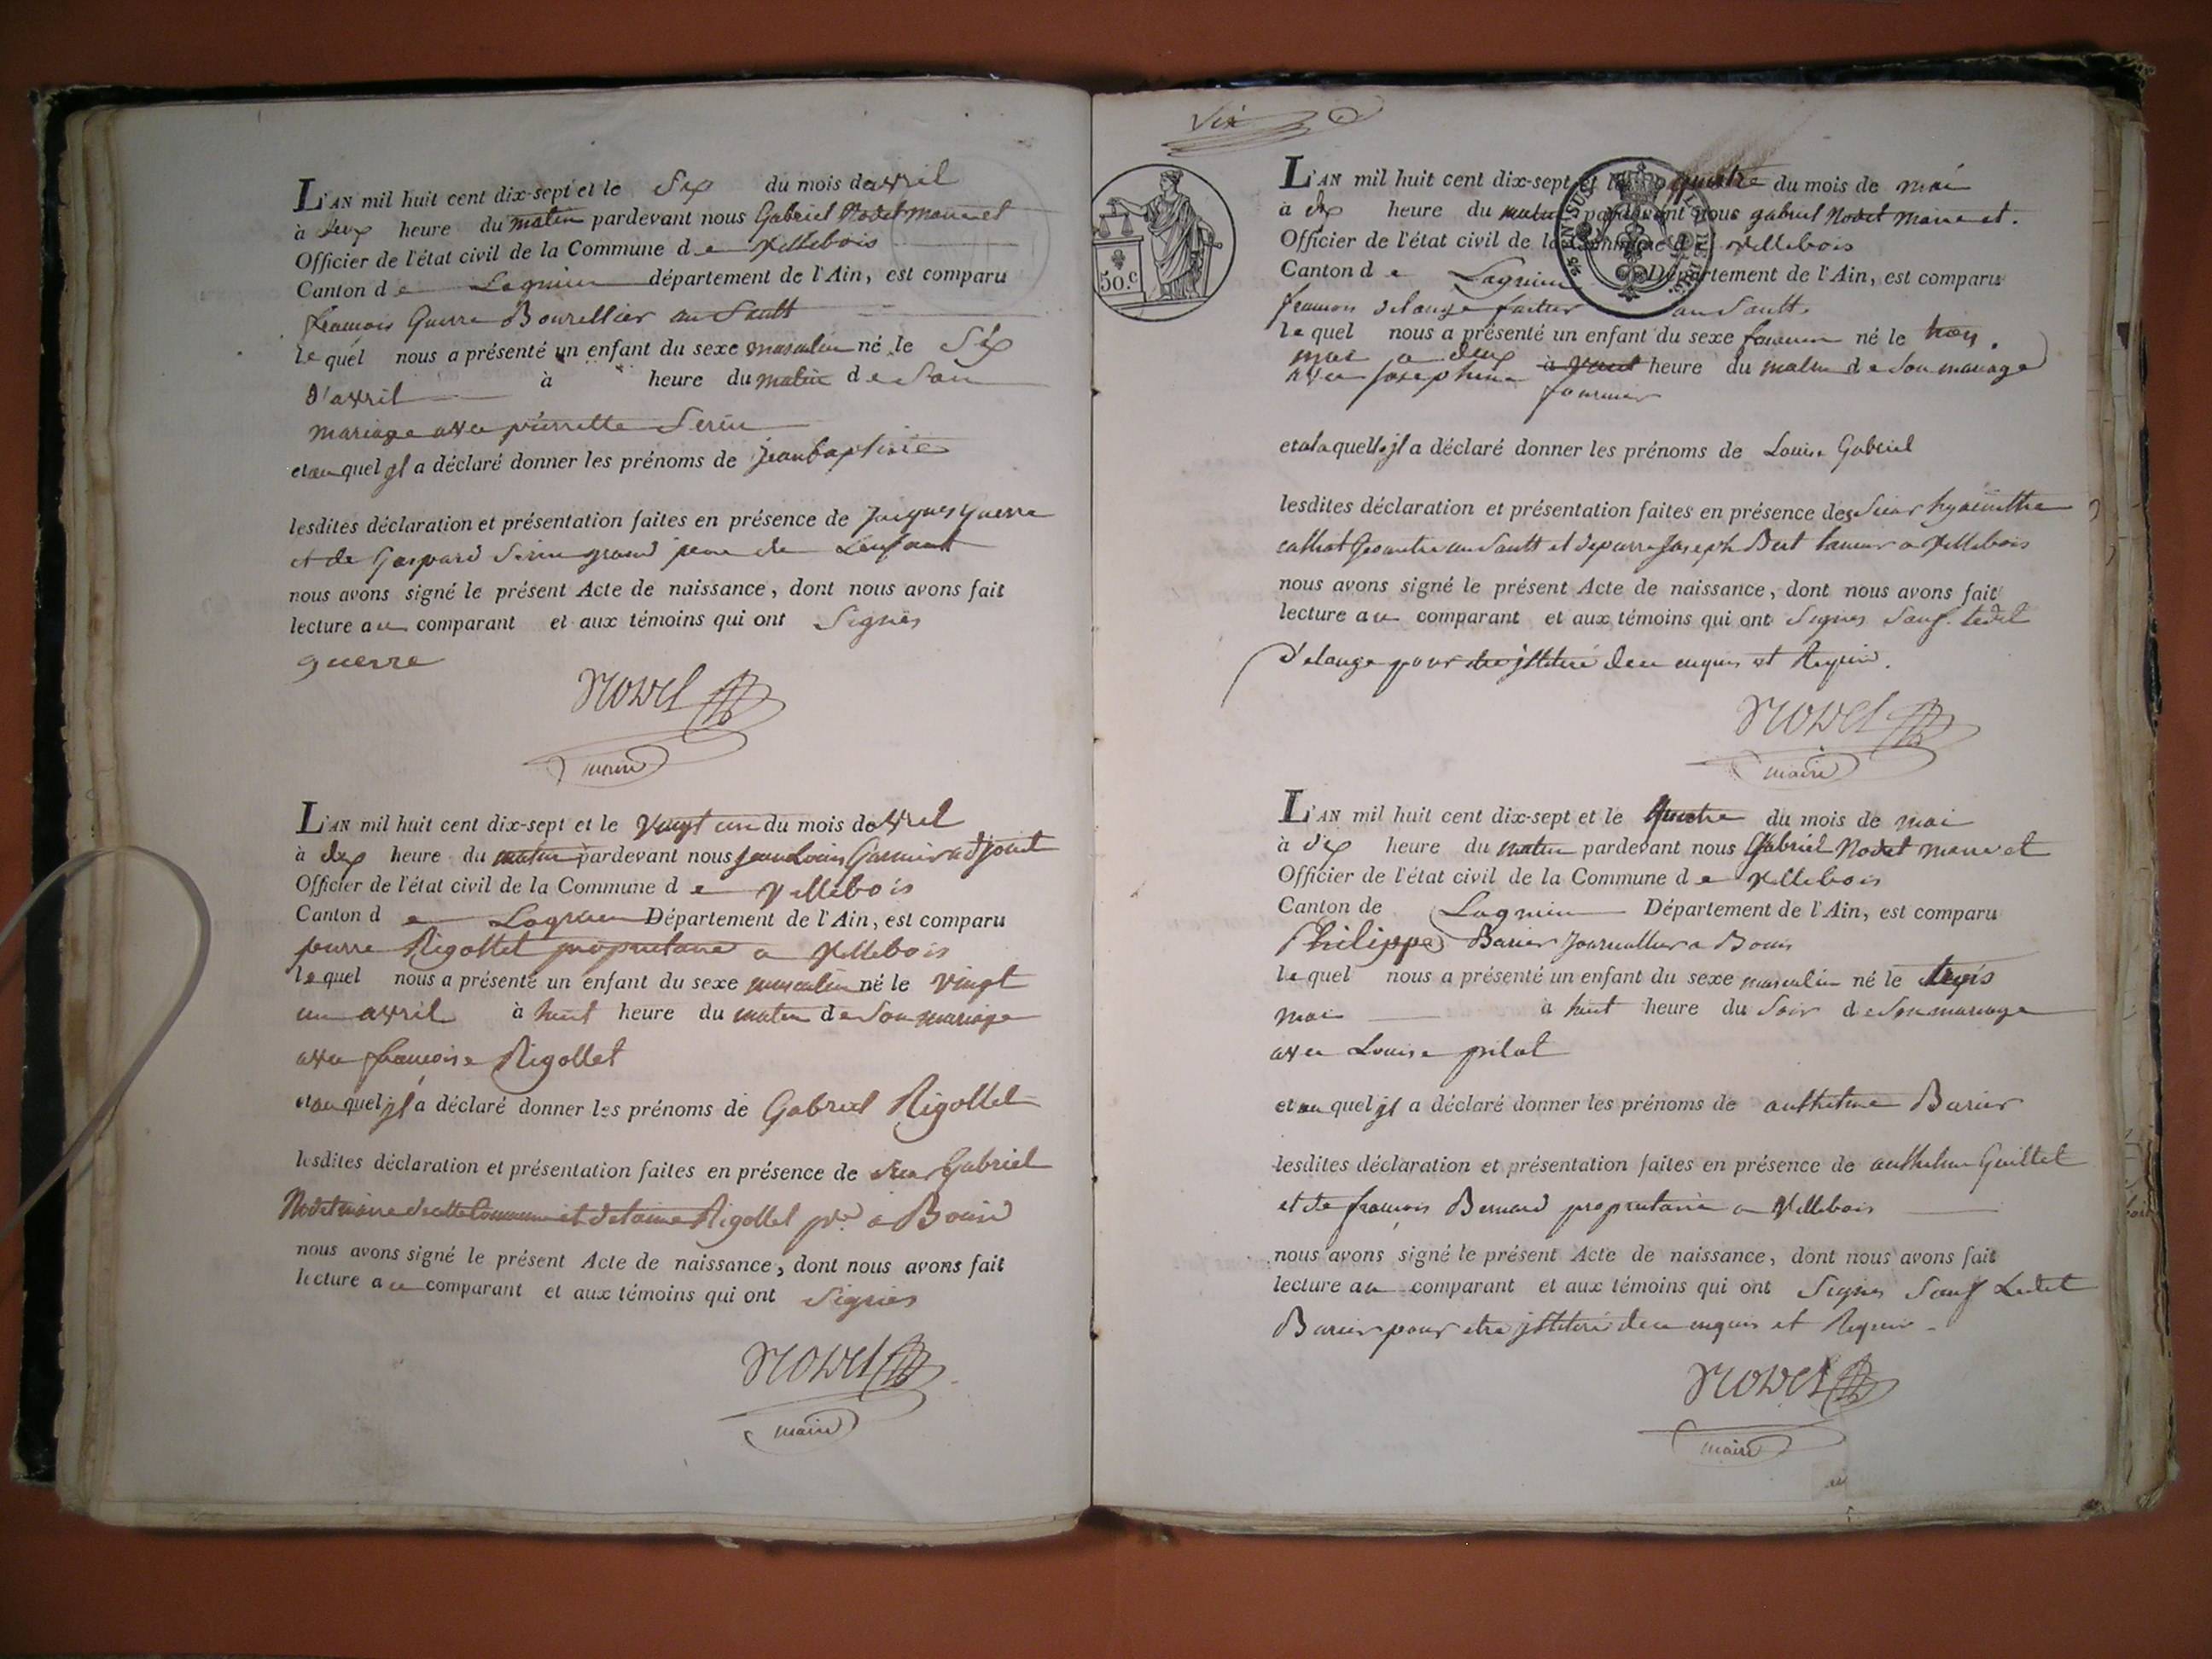 L'AN mil huit cent dix-sept et le Six du mois davril
à dix heure du matin pardevant nous Gabriel Nodet maire et
Officier de l'état civil de la Commune d e Villebois
Canton d e Lagnieu département de l'Ain, est comparu
françois Guerre Bourellier au Sault
le quel nous a présenté un enfant du sexe masculin né le Six
d'avril à heure du matin d e Son
mariage avec pierrette Serin
et au quel jl a déclaré donner les prénoms de jean baptiste
lesdites déclaration et présentation faites en présence de Jacques Guerre
et de Gaspard Serin grand pere de Lenfant
nous avons signé le présent Acte de naissance, dont nous avons fait
lecture au comparant et aux témoins qui ont Signés
guerre
Nodet
maire
L'AN mil huit cent dix-sept et le Vingt un du mois davril
à dix heure du matin pardevant nous Jean Louis adjoint
Officier de l'état civil de la Commune d e Villebois
Canton d e Lagnieu Département de l'Ain, est comparu
pierre Rigollet proprietaire a Villebois
le quel nous a présenté un enfant du sexe masculin né le vingt
un avril à huit heure du matin d e Son mariage
avec françoise Rigollet
et au quel jl a déclaré donner les prénoms de Gabriel Rigollet
lesdites déclaration et présentation faites en présence de Sieur Gabriel
Nodet maire de cette Commune et Rigollet pre a Bouis
nous avons signé le présent Acte de naissance, dont nous avons fait
lecture au comparant et aux témoins qui ont Signés
Nodet
maire
Six
50.c
EN SUS
L'AN mil huit cent dix-sept et le quatre du mois de mai
à dix heure du matin pardevant nous gabriel Nodet maire et
Officier de l'état civil de la Commune d e Villebois
Canton d e Lagnieu Département de l'Ain, est comparu
francois delange au Sault
le quel nous a présenté un enfant du sexe feminin né le trois
mai a deux heure du matin d e Son mariage
avec Josephine fournier
et a la quelle jl a déclaré donner les prénoms de Louise Gabriel
lesdites déclaration et présentation faites en présence des Sieur hyacinthe
au Sault et de pierre Joseph Bert a Villebois
nous avons signé le présent Acte de naissance, dont nous avons fait
lecture au comparant et aux témoins qui ont Signés Sauf ledit
delange pour jlliteré de ce enquis et Requis.
Nodet
maire
L'AN mil huit cent dix-sept et le quatre du mois de mai
à dix heure du matin pardevant nous Gabriel Nodet maire et
Officier de l'état civil de la Commune d e Villebois
Canton de Lagnieu Département de l'Ain, est comparu
Philippe Barier Journallier a Bouis
le quel nous a présenté un enfant du sexe masculin né le trois
mai à huit heure du Soir d e Son mariage
avec Louise pilat
et au quel jl a déclaré donner les prénoms de anthelme Barier
lesdites déclaration et présentation faites en présence de anthelme Guillet
et de françois Bernard proprietaire a Villebois
nous avons signé le présent Acte de naissance, dont nous avons fait
lecture au comparant et aux témoins qui ont Signés Sauf Ledit
Barier pour etre jlliteré de ce enquis et Requis
Nodet
maire